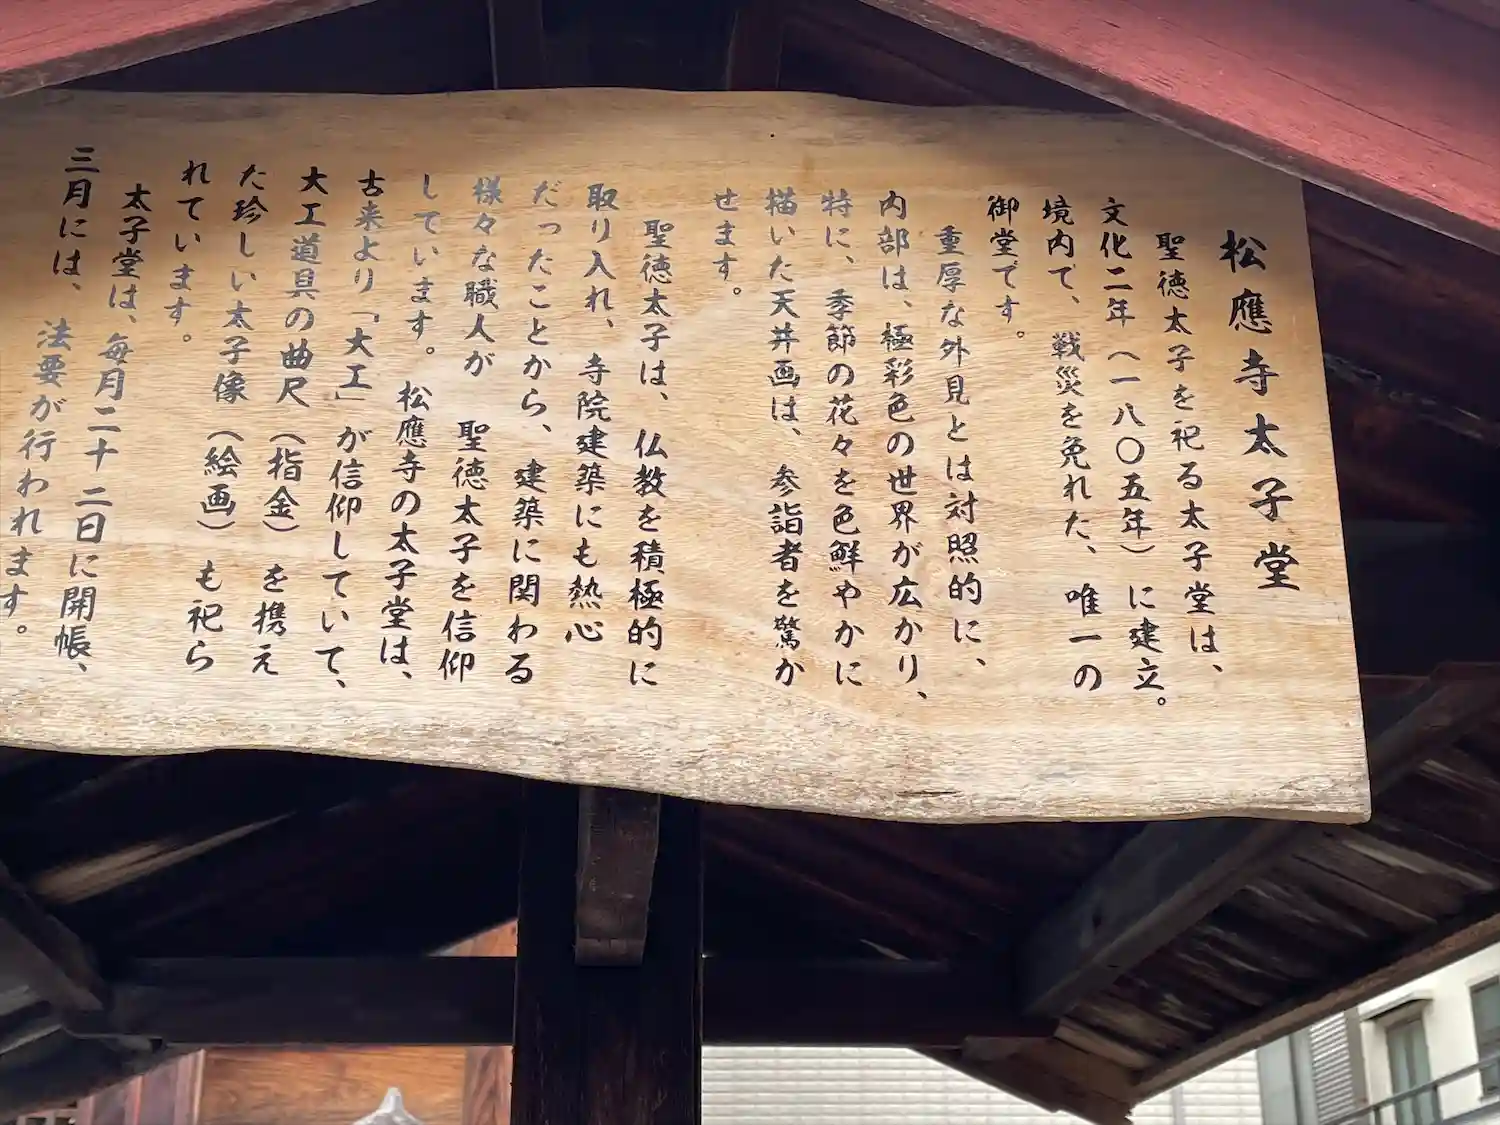 松應寺太子堂
聖徳太子を祀る太子堂は、
文化二年（一八〇五年）に建立。
境内で、戦災を免れた、唯一の
御堂です。
重厚な外見とは対照的に、
内部は、極彩色の世界が広かり、
特に、季節の花々を色鮮やかに
描いた天井画は、参詣者を驚か
せます。
聖徳太子は、仏教を積極的に
取り入れ、寺院建築にも熱心
だったことから、建築に関わる
様々な職人が　聖徳太子を信仰
しています。　松應寺の太子堂は、
古来より「大工」が信仰していて、
大工道具の曲尺（指金）を携え
た珍しい太子像（絵画）も祀ら
れています。
太子堂は、毎月二十二日に開帳、
三月には、法要が行われます。